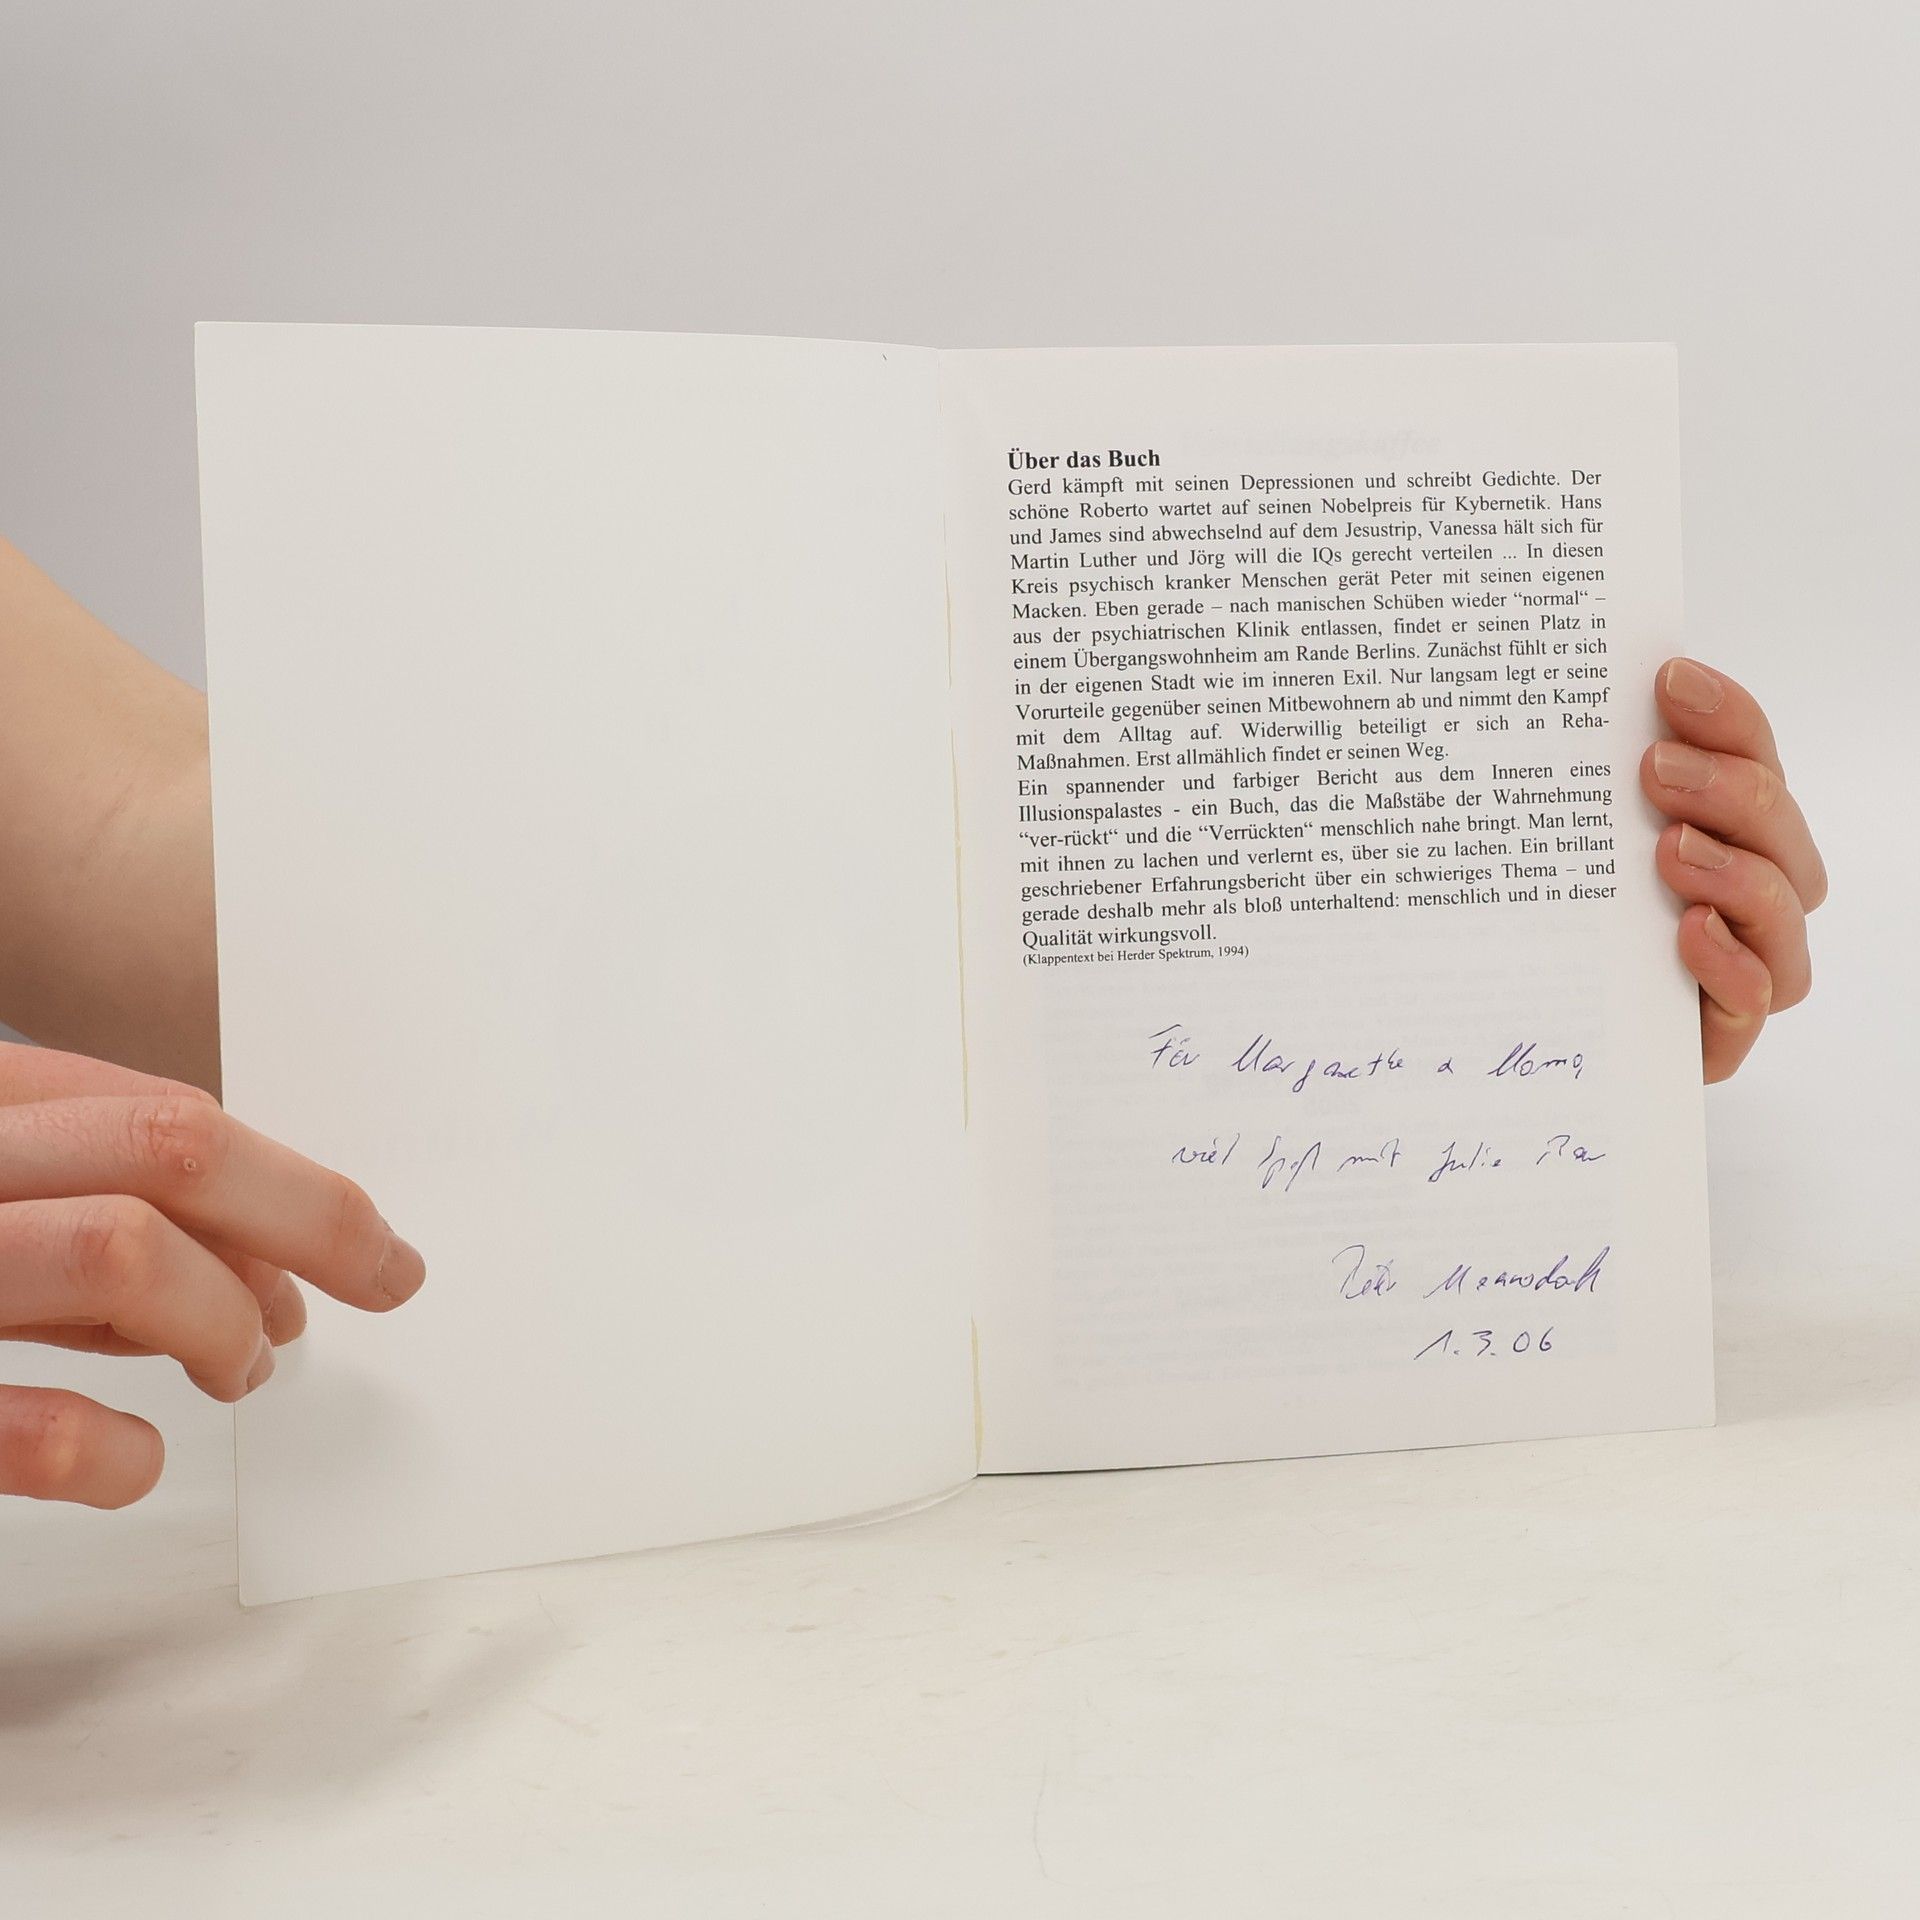 Über das Buch
Gerd kämpft mit seinen Depressionen und schreibt Gedichte. Der
schöne Roberto wartet auf seinen Nobelpreis für Kybernetik. Hans
und James sind abwechselnd auf dem Jesustrip, Vanessa hält sich für
Martin Luther und Jörg will die IQs gerecht verteilen ... In diesen
Kreis psychisch kranker Menschen gerät Peter mit seinen eigenen
Macken. Eben gerade – nach manischen Schüben wieder “normal“ –
aus der psychiatrischen Klinik entlassen, findet er seinen Platz in
einem Übergangswohnheim am Rande Berlins. Zunächst fühlt er sich
in der eigenen Stadt wie im inneren Exil. Nur langsam legt er seine
Vorurteile gegenüber seinen Mitbewohnern ab und nimmt den Kampf
mit dem Alltag auf. Widerwillig beteiligt er sich an Reha-
Maßnahmen. Erst allmählich findet er seinen Weg.
Ein spannender und farbiger Bericht aus dem Inneren eines
Illusionspalastes - ein Buch, das die Maßstäbe der Wahrnehmung
“ver-rückt“ und die “Verrückten“ menschlich nahe bringt. Man lernt,
mit ihnen zu lachen und verlernt es, über sie zu lachen. Ein brillant
geschriebener Erfahrungsbericht über ein schwieriges Thema – und
gerade deshalb mehr als bloß unterhaltend: menschlich und in dieser
Qualität wirkungsvoll.
(Klappentext bei Herder Spektrum, 1994)
Für Margarethe & Momo,
viel Spaß mit Julie
Peter
1.3.06